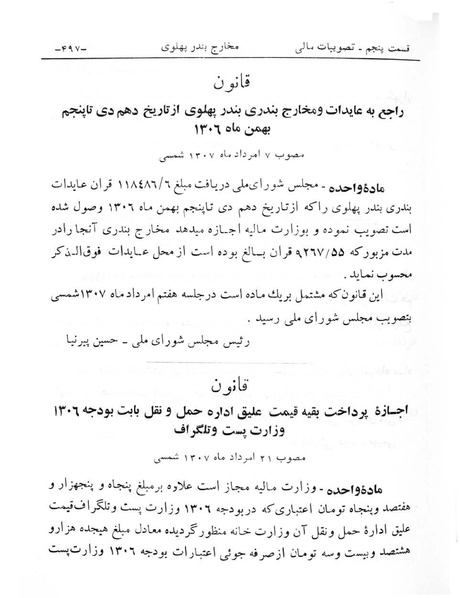 قسمت پنجم - تصویبات مالی مخارج بندر پهلوی -۴۹۷-
قانون
راجع به عایدات و مخارج بندری بندر پهلوی از تاریخ دهم دی تا پنجم
بهمن ماه ۱۳۰۶
مصوب ۷ امرداد ماه ۱۳۰۷ شمسی
مادهٔ واحده - مجلس شورای ملی دریافت مبلغ ۱۱۸۴۸۶/۶ قران عایدات
بندری بندر پهلوی را که از تاریخ دهم دی تا پنجم بهمن ماه ۱۳۰۶ وصول شده
است تصویب نموده و بوزارت مالیه اجازه میدهد مخارج بندری آنجا رادر
مدت مزبور که ۹۲۶۷/۵۵ قران بالغ بوده است از محل عایدات فوق الذکر
محسوب نماید .
این قانون که مشتمل بریك ماده است در جلسه هفتم امرداد ماه ۱۳۰۷ شمسی
بتصویب مجلس شورای ملی رسید .
رئیس مجلس شورای ملی - حسین پیرنیا
قانون
اجازهٔ پرداخت بقیه قیمت علیق اداره حمل و نقل بابت بودجه ۱۳۰۶
وزارت پست و تلگراف
مصوب ۲۱ امرداد ماه ۱۳۰۷ شمسی
مادهٔ واحده - وزارت مالیه مجاز است علاوه بر مبلغ پنجاه و پنجهزار و
هفتصد و پنجاه تومان اعتباری که در بودجه ۱۳۰۶ وزارت پست و تلگراف قیمت
علیق ادارهٔ حمل و نقل آن وزارت خانه منظور گردیده معادل مبلغ هیجده هزار و
هشتصد و بیست و سه تومان از صرفه جوئی اعتبارات بودجه ۱۳۰۶ وزارت پست